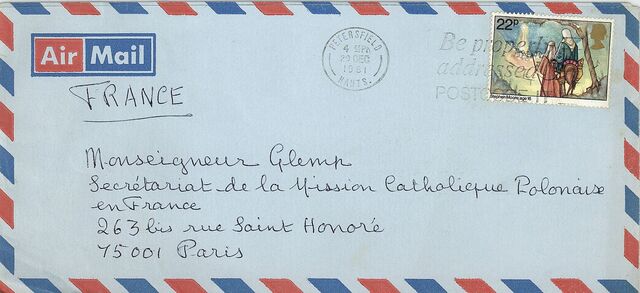 Air Mail
PETERSFIELD
4 30PM
29 DEC
1981
HANTS.
Be properly
addressed
POSTCODE IT
22P
Stephen Moore age 16
FRANCE
Monseigneur Glemp
Secrétariat de la Mission Catholique Polonaise
en France
263 bis rue Saint Honoré
75001 Paris